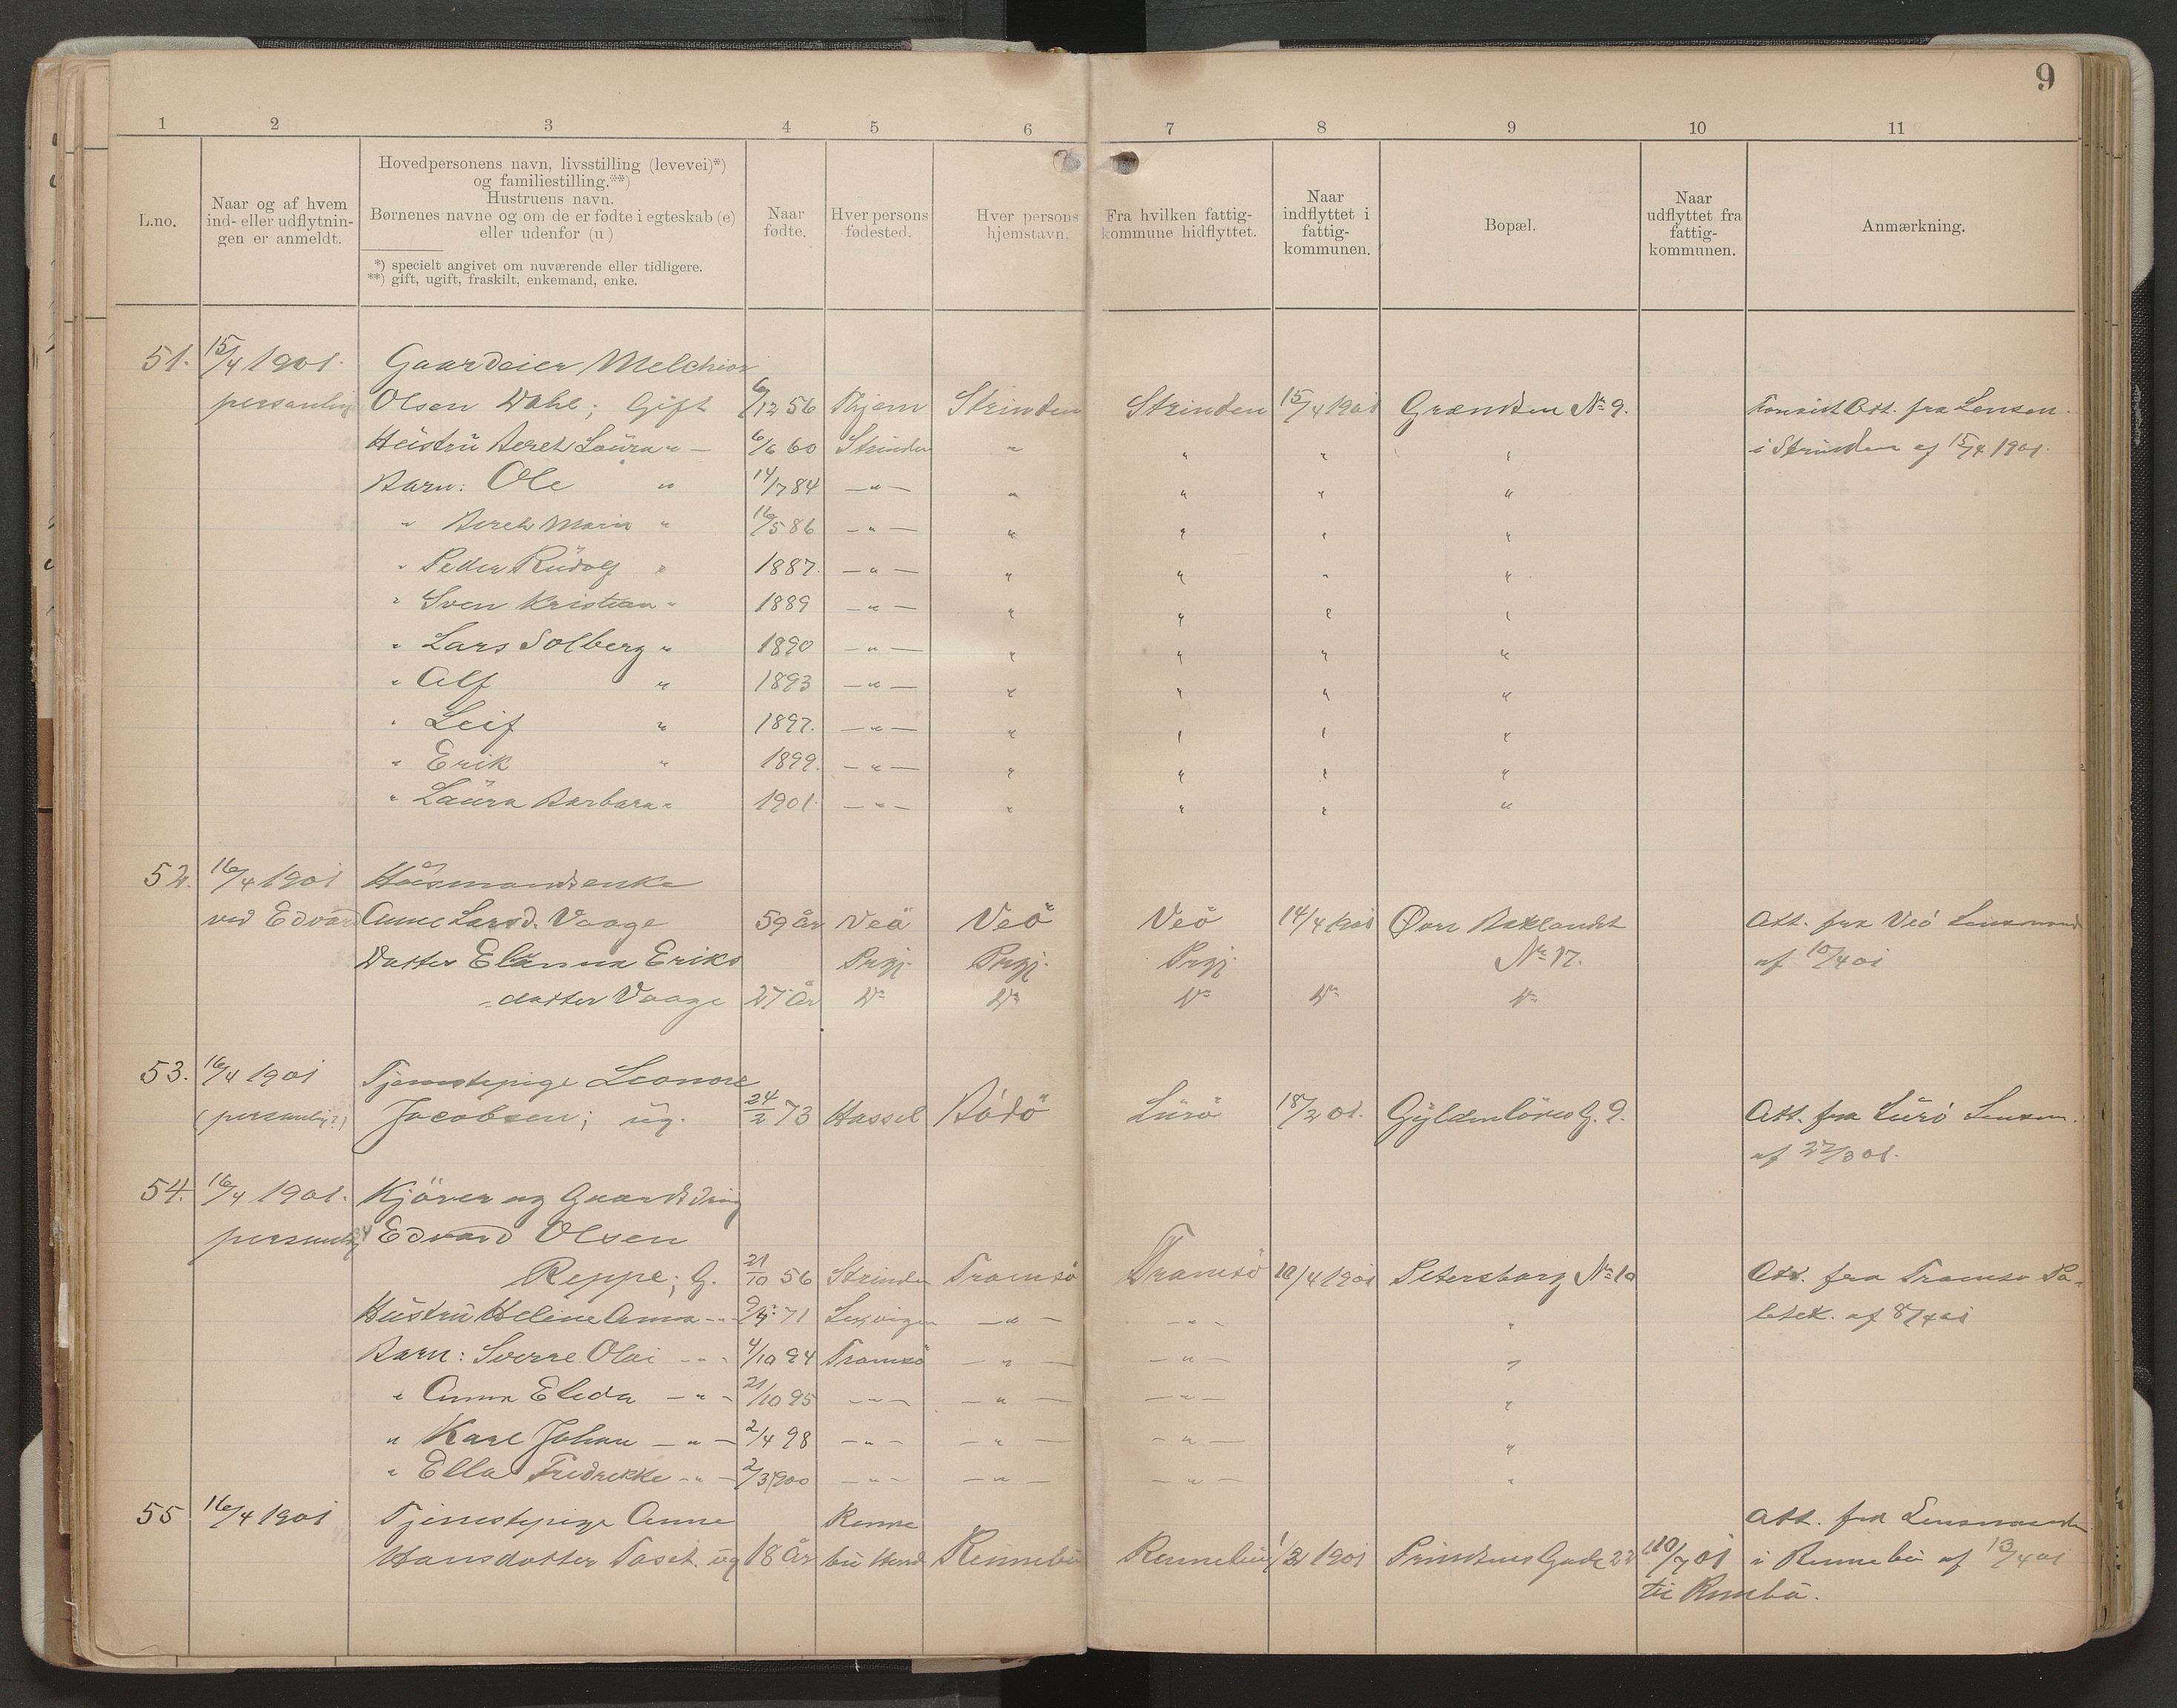 9
1 2 3 4 5 6 7 8 9 10 11
L.no.
Naar og af hvem
ind- eller udflytnin-
gen er anmeldt.
Hovedpersonens navn, livsstilling (levevei)*)
og familiestilling.**)
Hustruens navn.
Børnenes navne og om de er fødte i egteskab (e)
eller udenfor (u)
*) specielt angivet om nuværende eller tidligere.
**) gift, ugift, fraskilt, enkemand, enke.
Naar
fødte.
Hver persons
fødested.
Hver persons
hjemstavn.
Fra hvilken fattig-
kommune hidflyttet.
Naar
indflyttet i
fattig-
kommunen.
Bopæl.
Naar
udflyttet fra
fattig-
kommunen.
Anmærkning.
51. 15/4 1901. Gaardeier Melchior
personlig Olsen Dahl; Gift 6/12 56 Thjem Strinden Strinden 15/4 1901 Grændsen No 9. Att. fra Lensm.
Hustru Beret Laura " — 6/6 60 Strinden " " " " i Strinden af 15/4 1901.
Barn: Ole " 14/7 84 — " — " " " "
" Beret Marie " 16/5 86 — " — " " " "
" Peder Rudolf " 1887. — " — " " " "
" Sven Kristian " 1889 — " — " " " "
" Lars Solberg " 1890 — " — " " " "
" Alf " 1893 — " — " " " "
" Leif " 1897. — " — " " " "
" Erik " 1899. — " — " " " "
" Laura Barbara " 1901. — " — " " " "
52. 16/4 1901 Husmandsenke
ved Edvard Anne Larsd. Vaage 59 år Veö Veö Veö 14/4 1901 Øvre Baklandet Att. fra Veö Lensmand
Datter Elanna Eriks Prgj. Prgj. Prgj. No 17. af 10/4 01
datter Vaage 27 år Do Do Do Do Do
53. 16/4 1901 Tjenestepige Leonore
(personlig?) Jacobsen; ug. 24/2 73 Hassel Bodö Lurö 18/2 01. Gyldenlöves G. 9. Att. fra Lurö Lensm.
af 27/3 01.
54. 16/4 1901. Kjörer og Gaardsdreng
personlig Edvard Olsen
Reppe; G. 21/10 56 Strinden Tromsö Tromsö 10/4 1901 Petersborg No 10 Att. fra Tromsö Po-
Hustru Helene Anna — " — 71 — " — — " — " litiek. af 8/4 01
Barn: Sverre Olai — " — 4/10 94 Tromsö — " — — " — "
" Anna Elida — " — 21/10 95 — " — — " — — " — "
" Karl Johan — " — 2/4 98 — " — — " — — " — "
" Ella Fredrikke — " — 2/3 1900 — " — — " — — " — "
55 16/4 1901 Tjenestepige Anne Renne Att. fra Lensmanden
Hansdatter ug 18 år bu Rennebu Rennebu 1901 Prindsens Gade 22 10/7 01 i Rennebu af 13/4 01
til Rennebu.